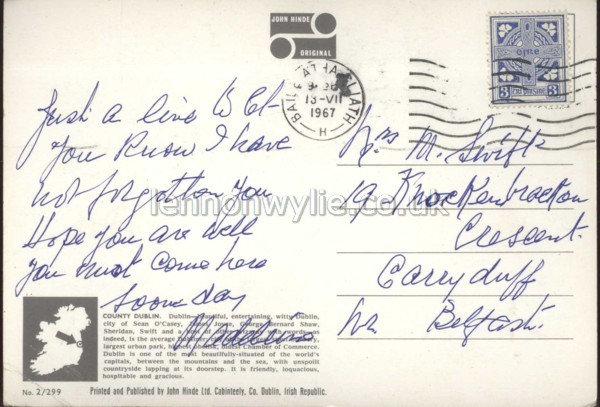 JOHN HINDE
ORIGINAL
BAILE ATHA CLIATH
13-VII
1967
H
éire
3 3
Just a line to let
You Know I have
not forgotten You
Hope you are well
You must come here
some day
Mrs M. Swift
19 Knockenbracken
Crescent.
Carryduff
Nr Belfast.
lennonwylie.co.uk
COUNTY DUBLIN. Dublin—beautiful, entertaining, witty Dublin,
city of Sean O'Casey, James Joyce, George Bernard Shaw,
Sheridan, Swift and a host of
indeed, is the average Dubliner.
largest urban park, oldest Chamber of Commerce.
Dublin is one of the most beautifully-situated of the world's
capitals, between the mountains and the sea, with unspoilt
countryside lapping at its doorstep. It is friendly, loquacious,
hospitable and gracious.
No. 2/299
Printed and Published by John Hinde Ltd. Cabinteely, Co. Dublin, Irish Republic.